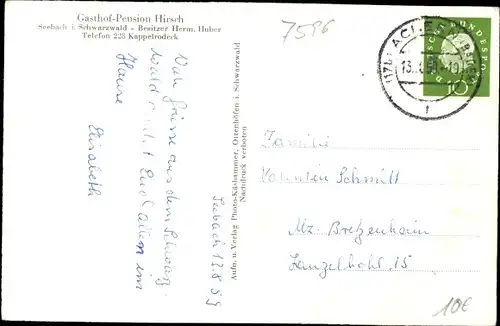 Gasthof-Pension Hirsch
Seebach i. Schwarzwald - Besitzer Herm. Huber
Telefon 228 Kappelrodeck
7596
(17b) ACHERN
13.
DEUTSCHE BUNDESPOST
10
Seebach 12.8.59
Viele Grüsse aus dem Schwarz-
wald sendet Euch allen im
Hause
Elisabeth
Aufn. u. Verlag Photo-Käshammer, Ottenhöfen i. Schwarzwald
Nachdruck verboten
Familie
Valentin Schmitt
Mz. Bretzenheim
Lanzelhohl 15
10€